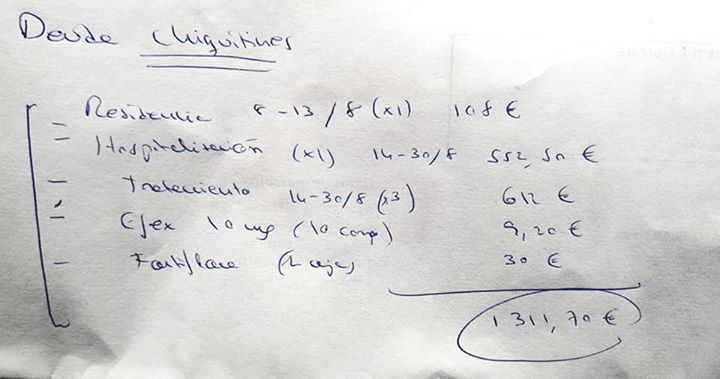 Deuda Chiquitines
- Residencia 8-13/8 (x1) 108 €
- Hospitalización (x1) 14-30/8 552,50 €
- Tratamiento 14-30/8 (x3) 612 €
- Efex 10 mg (10 comp) 9,20 €
- Fortiflora (1 caja) 30 €
1311,70 €